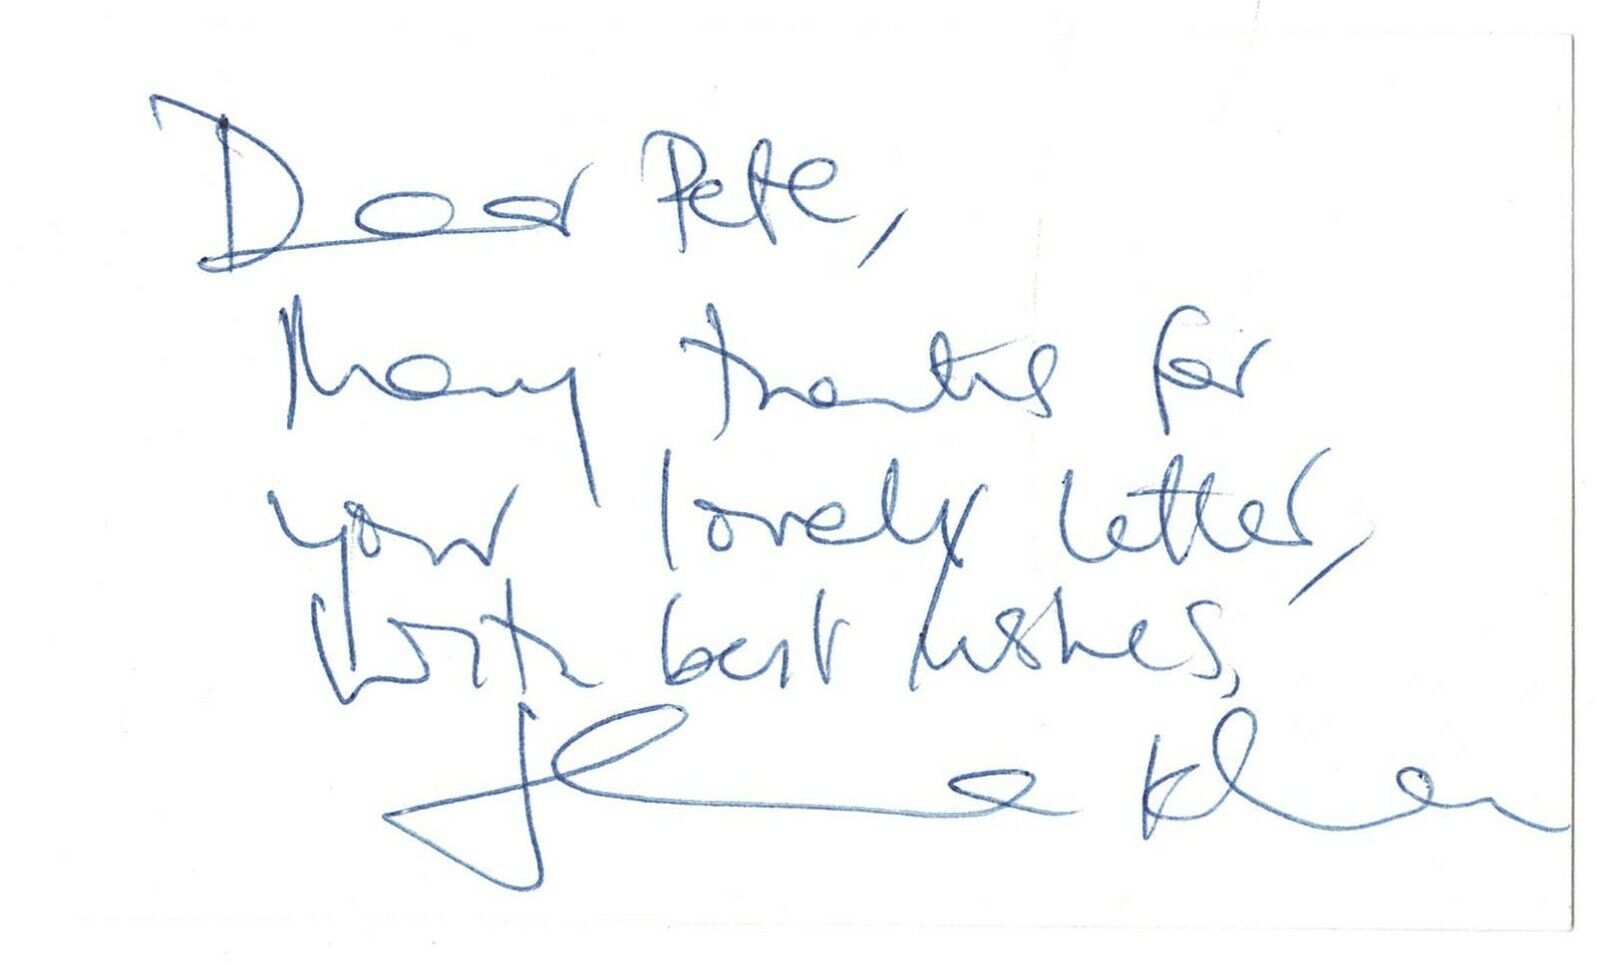 Dear Pete,
Many thanks for
your lovely letter,
With best wishes,
Khan